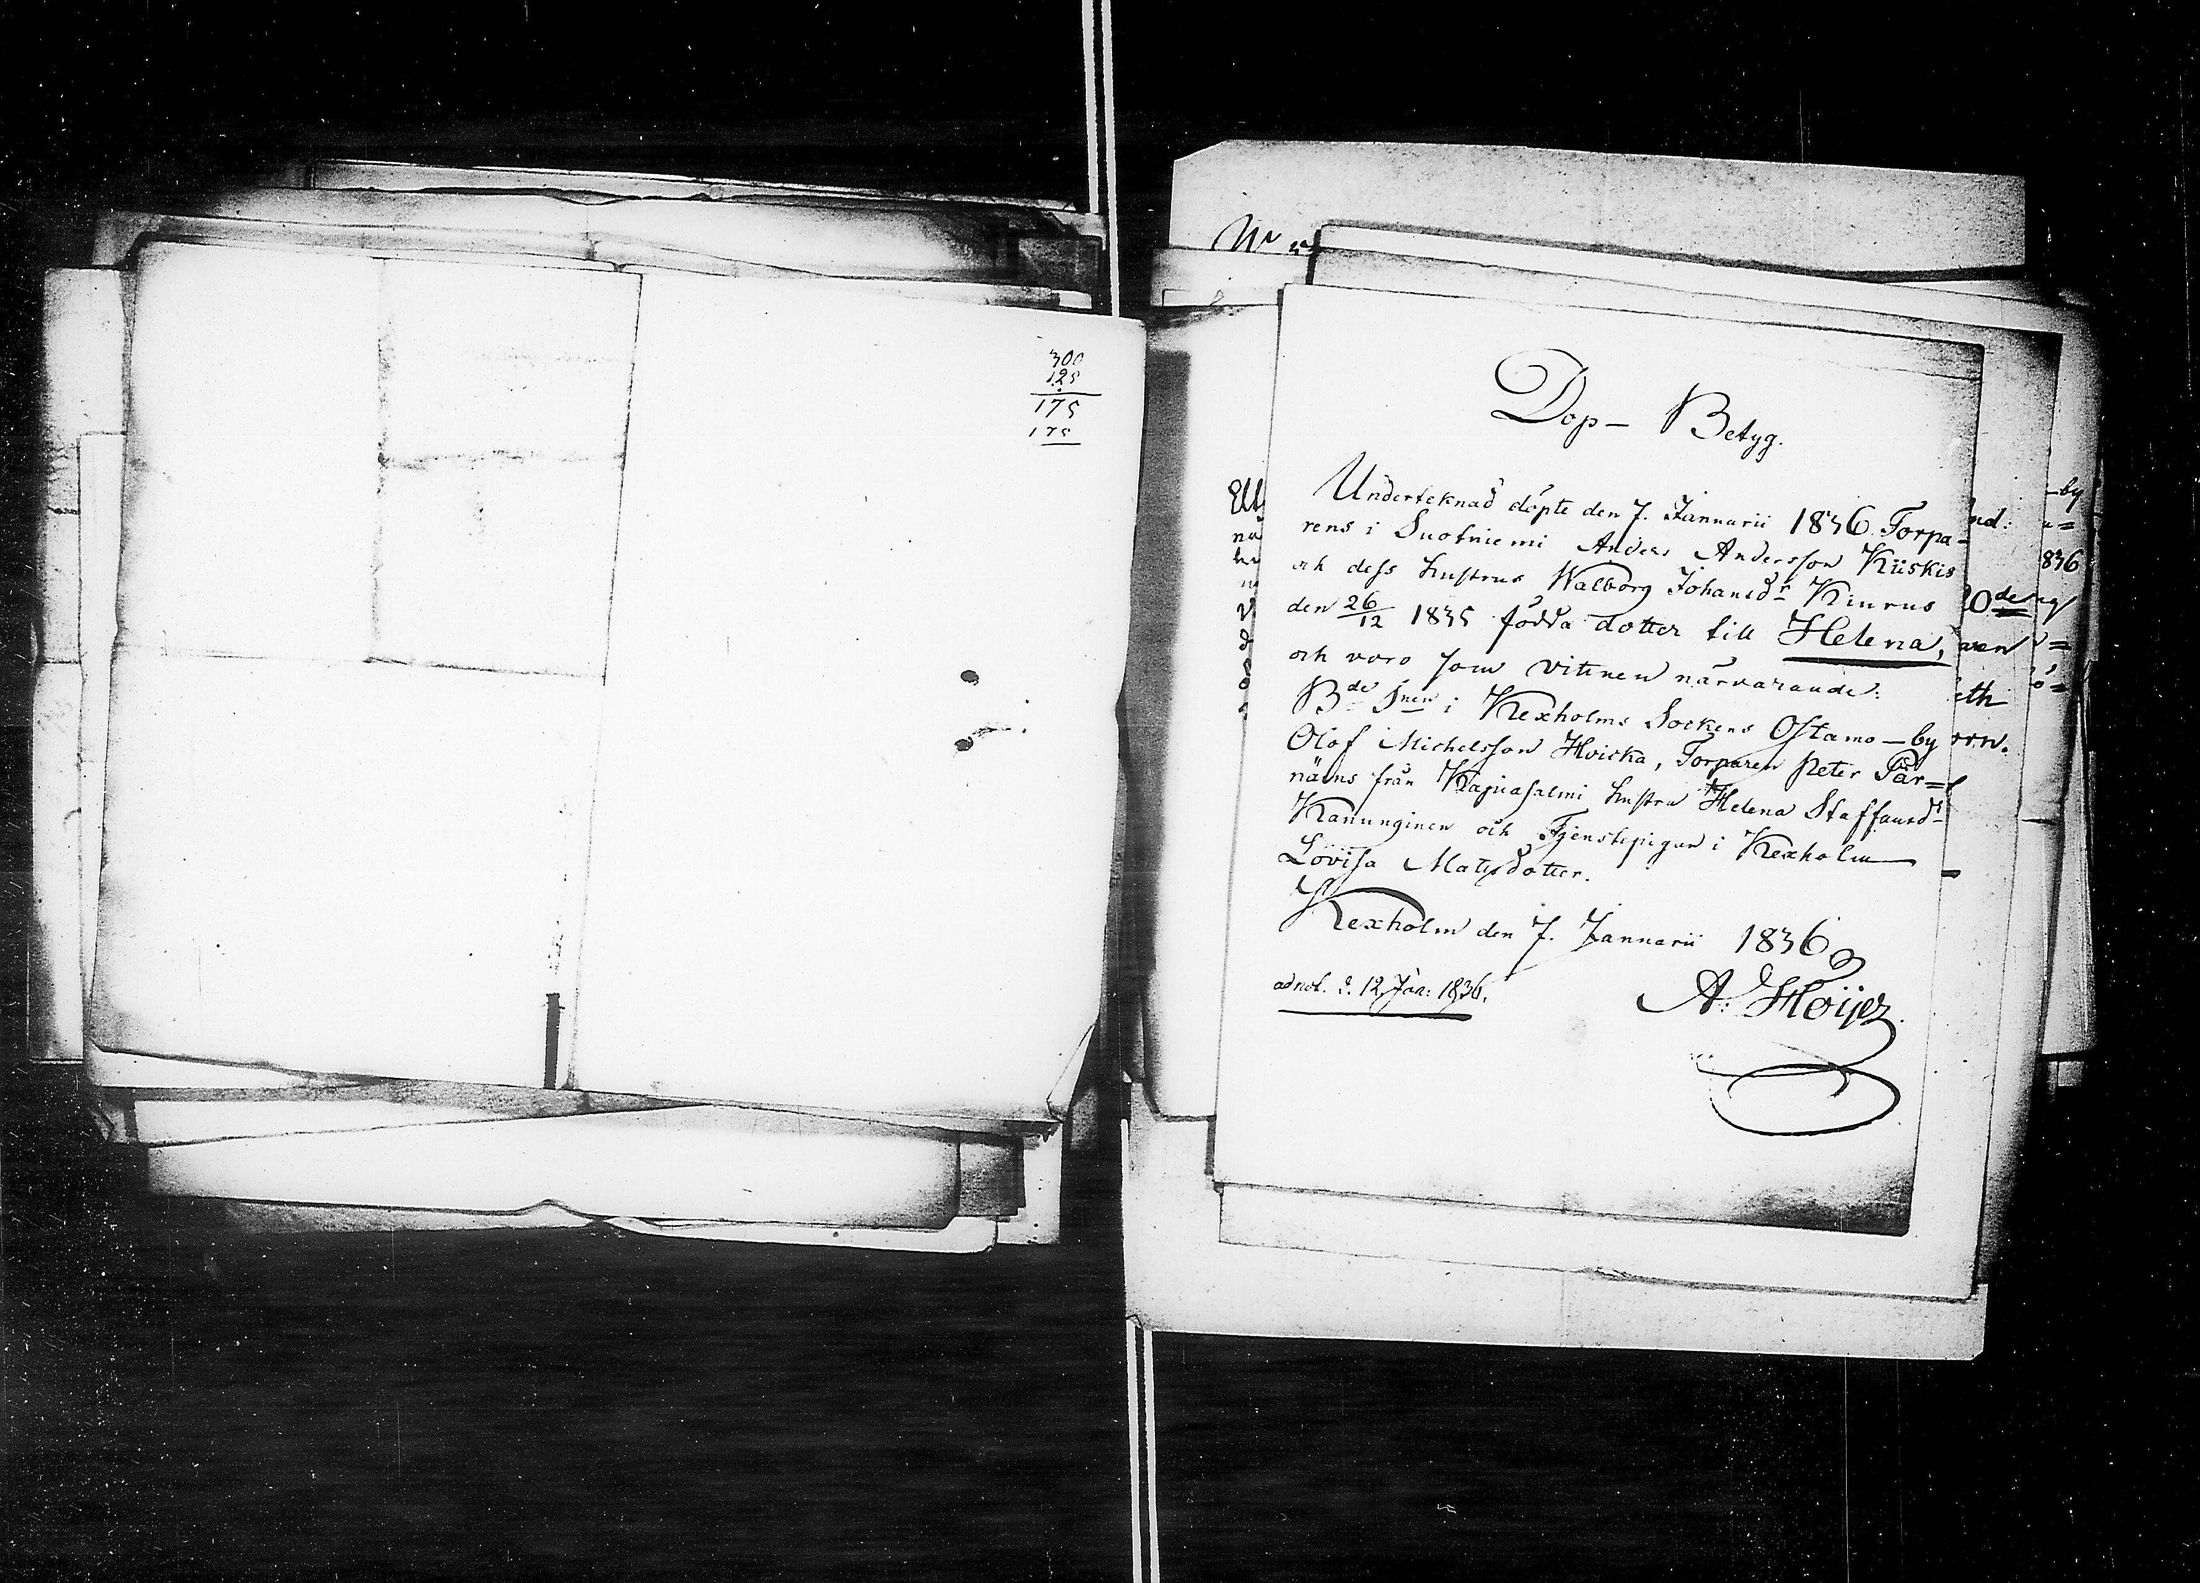 300
125
175
175
Dop- Betyg.
Underteknad döpte den 7. Januarii 1836 Torpa-
rens i Suotniemi Anders Andersson Kiiskis
och dess hustrus Walborg Johansdr Kiurus
den 26/12 1835 födda dotter till Helena,
och voro som vittnen närvarande:
Bde Snen i Kexholms Sockens Ostamo-by
Olof Michelsson Hvicka, Torparen Peter Pär=
näins från Kapiasalmi hustru Helena Staffansdr
Kanunginen och Tjenstepigan i Kexholm
Lovisa Matsdotter.
Kexholm den 7. Januarii 1836
A: Höijer.
adnot. d. 12 Jan: 1836.